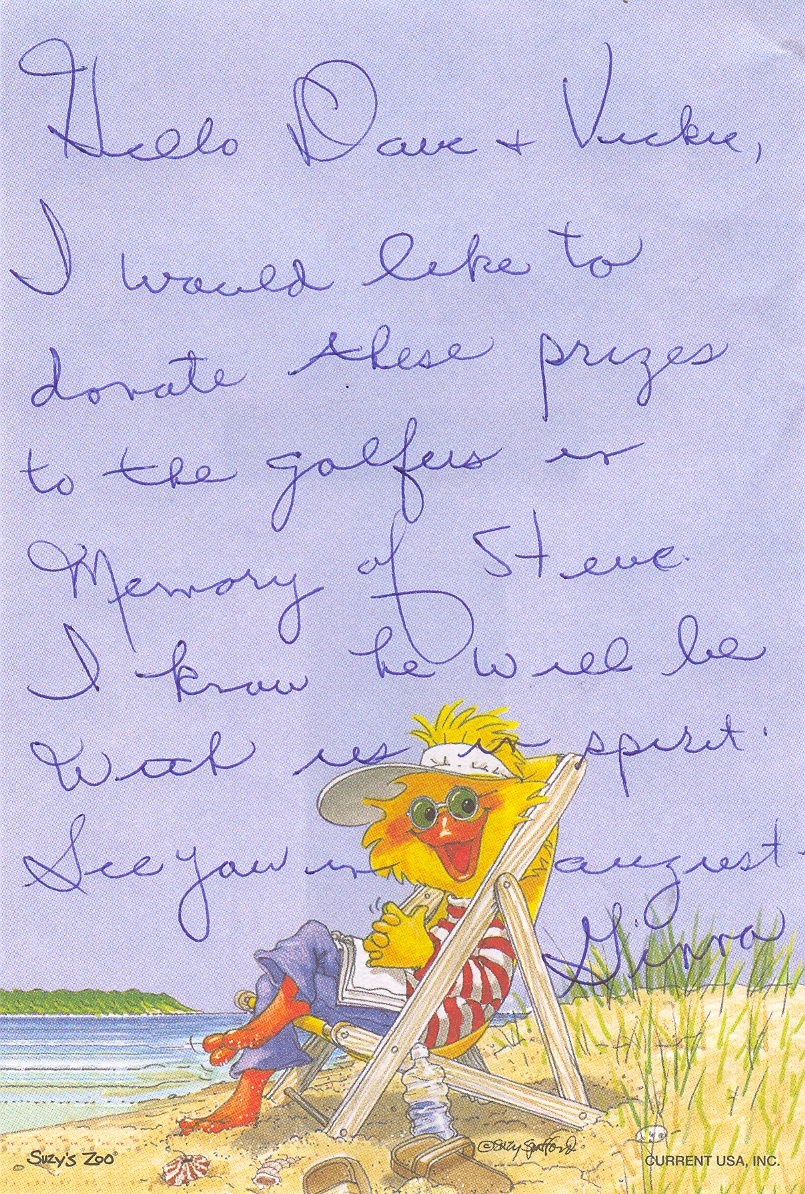 Hello Dave + Vickie,
I would like to
donate these prizes
to the golfers in
Memory of Steve.
I know he will be
With us in spirit.
See you in august.
Ginna
©Suzy Spafford
SUZY'S ZOO®
CURRENT USA, INC.